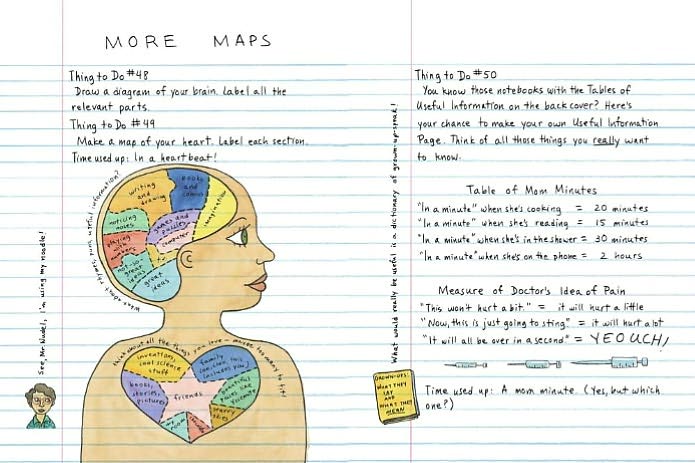 MORE MAPS
Thing to Do #48
Draw a diagram of your brain. Label all the
relevant parts.
Thing to Do #49
Make a map of your heart. Label each section.
Time used up: In a heartbeat!
What about rhymes, puns, useful information?
writing
and
drawing
books
and
comics
imagination
noticing
noises
games and
puzzles
playing
with
numbers
computer
not-so-
great
ideas
great
ideas
See, Mr. Nudel, I'm using my noodle!
think about all the things you love - maybe too many to fit!
inventions,
cool science
stuff
family
includes you)
books,
stories,
pictures
friends
beautiful
places like
Yosemite
starry
skies
my
room
Thing to Do #50
You know those notebooks with the Tables of
Useful Information on the back cover? Here's
your chance to make your own Useful Information
Page. Think of all those things you really want
to know.
Table of Mom Minutes
"In a minute" when she's cooking = 20 minutes
"In a minute" when she's reading = 15 minutes
"In a minute" when she's in the shower = 30 minutes
"In a minute" when she's on the phone = 2 hours
Measure of Doctor's Idea of Pain
"This won't hurt a bit." = it will hurt a little
"Now, this is just going to sting" = it will hurt a lot
"It will all be over in a second" = YEOUCH!
What would really be useful is a dictionary of grown-up-speak!
GROWN-UPS:
WHAT THEY
SAY
AND
WHAT THEY
MEAN
Time used up: A mom minute. (Yes, but which
one?)